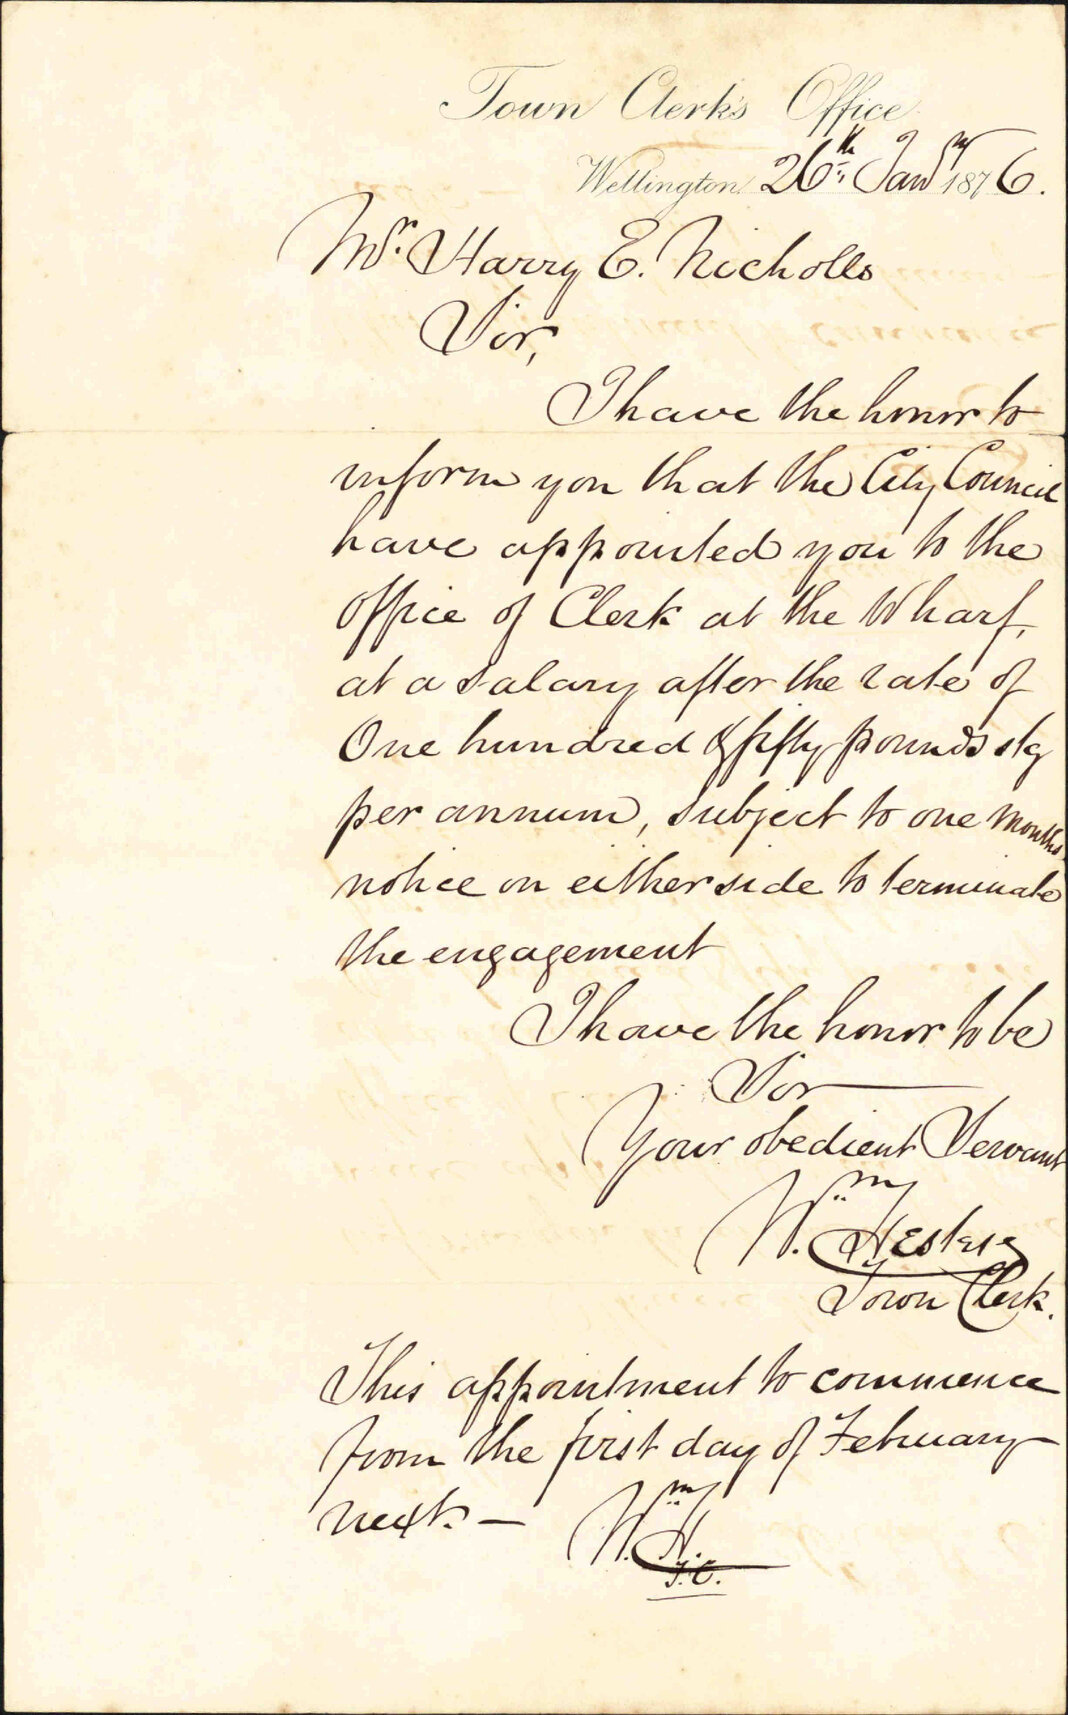 Town Clerk's Office
Wellington 26th Jany 1876.
Mr. Harry E. Nicholls
Sir,
I have the honor to
inform you that the City Council
have appointed you to the
office of Clerk at the Wharf,
at a salary after the rate of
One hundred & fifty pounds stg
per annum, subject to one months
notice on either side to terminate
the engagement
I have the honor to be
Sir
Your obedient Servant
Wm. Hester
Town Clerk.
This appointment to commence
from the first day of February
next. —
Wm. H.
T.C.